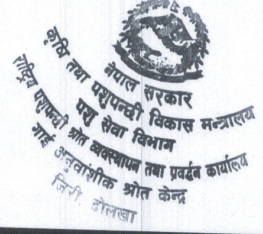 नेपाल सरकार
कृषि तथा पशुपन्छी विकास मन्त्रालय
पशु सेवा विभाग
राष्ट्रिय पशुपन्छी श्रोत व्यवस्थापन तथा प्रवर्द्धन कार्यालय
गाई अनुवांशीक श्रोत केन्द्र
जिरी, दोलखा